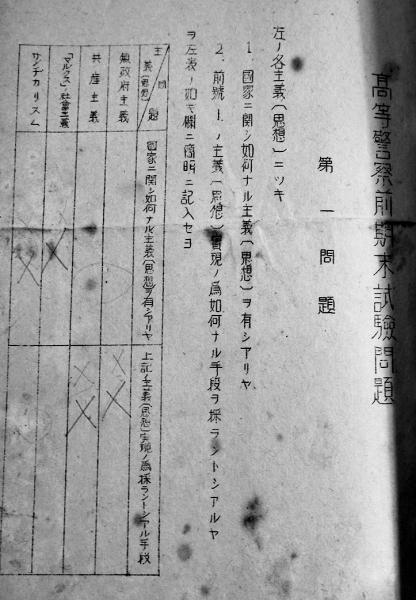 高等警察前期末試驗問題
第一問題
左ノ各主義(思想)ニツキ
1. 國家ニ関シ如何ナル主義(思想)ヲ有シアリヤ
2. 前號1ノ主義(思想)實現ノ為如何ナル手段ヲ採ラントシアルヤ
ヲ左表ノ如キ欄ニ簡明ニ記入セヨ
主義(思想) 問題
國家ニ関シ如何ナル主義(思想)ヲ有シアリヤ
上記ノ主義(思想)実現ノ為採ラントシアル手段
無政府主義
共産主義
「マルクス」社會主義
サンヂカリズム